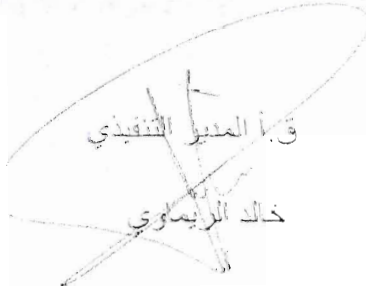 ق.أ المدير التنفيذي
خالد الريماوي